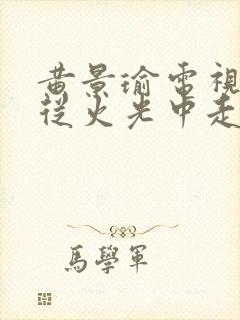 黃景瑜電視
從火光中走
馬學軍